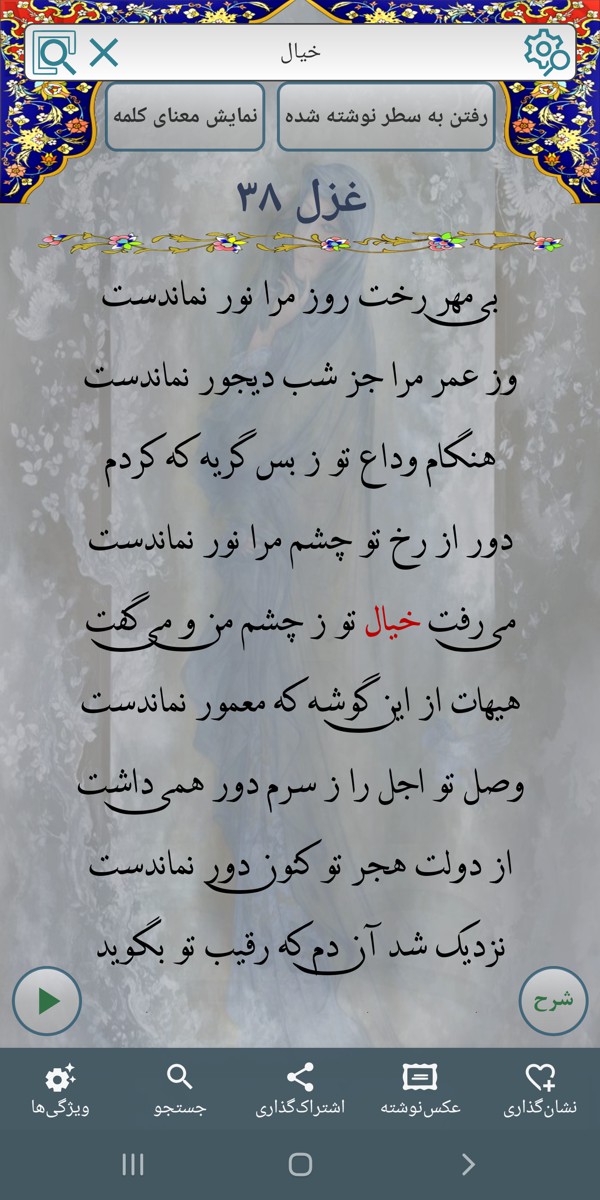 خیال
رفتن به سطر نوشته شده
نمایش معنای کلمه
غزل ۳۸
بی مهر رخت روز مرا نور نماندست
وز عمر مرا جز شب دیجور نماندست
هنگام وداع تو ز بس گریه که کردم
دور از رخ تو چشم مرا نور نماندست
می رفت خیال تو ز چشم من و می گفت
هیهات از این گوشه که معمور نماندست
وصل تو اجل را ز سرم دور همی داشت
از دولت هجر تو کنون دور نماندست
نزدیک شد آن دم که رقیب تو بگوید
شرح
نشان‌گذاری
عکس‌نوشته
اشتراک‌گذاری
جستجو
ویژگی‌ها